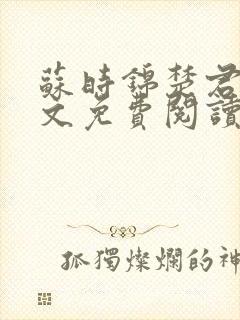 蘇時錦楚君
文免費閱讀
孤獨燦爛的神